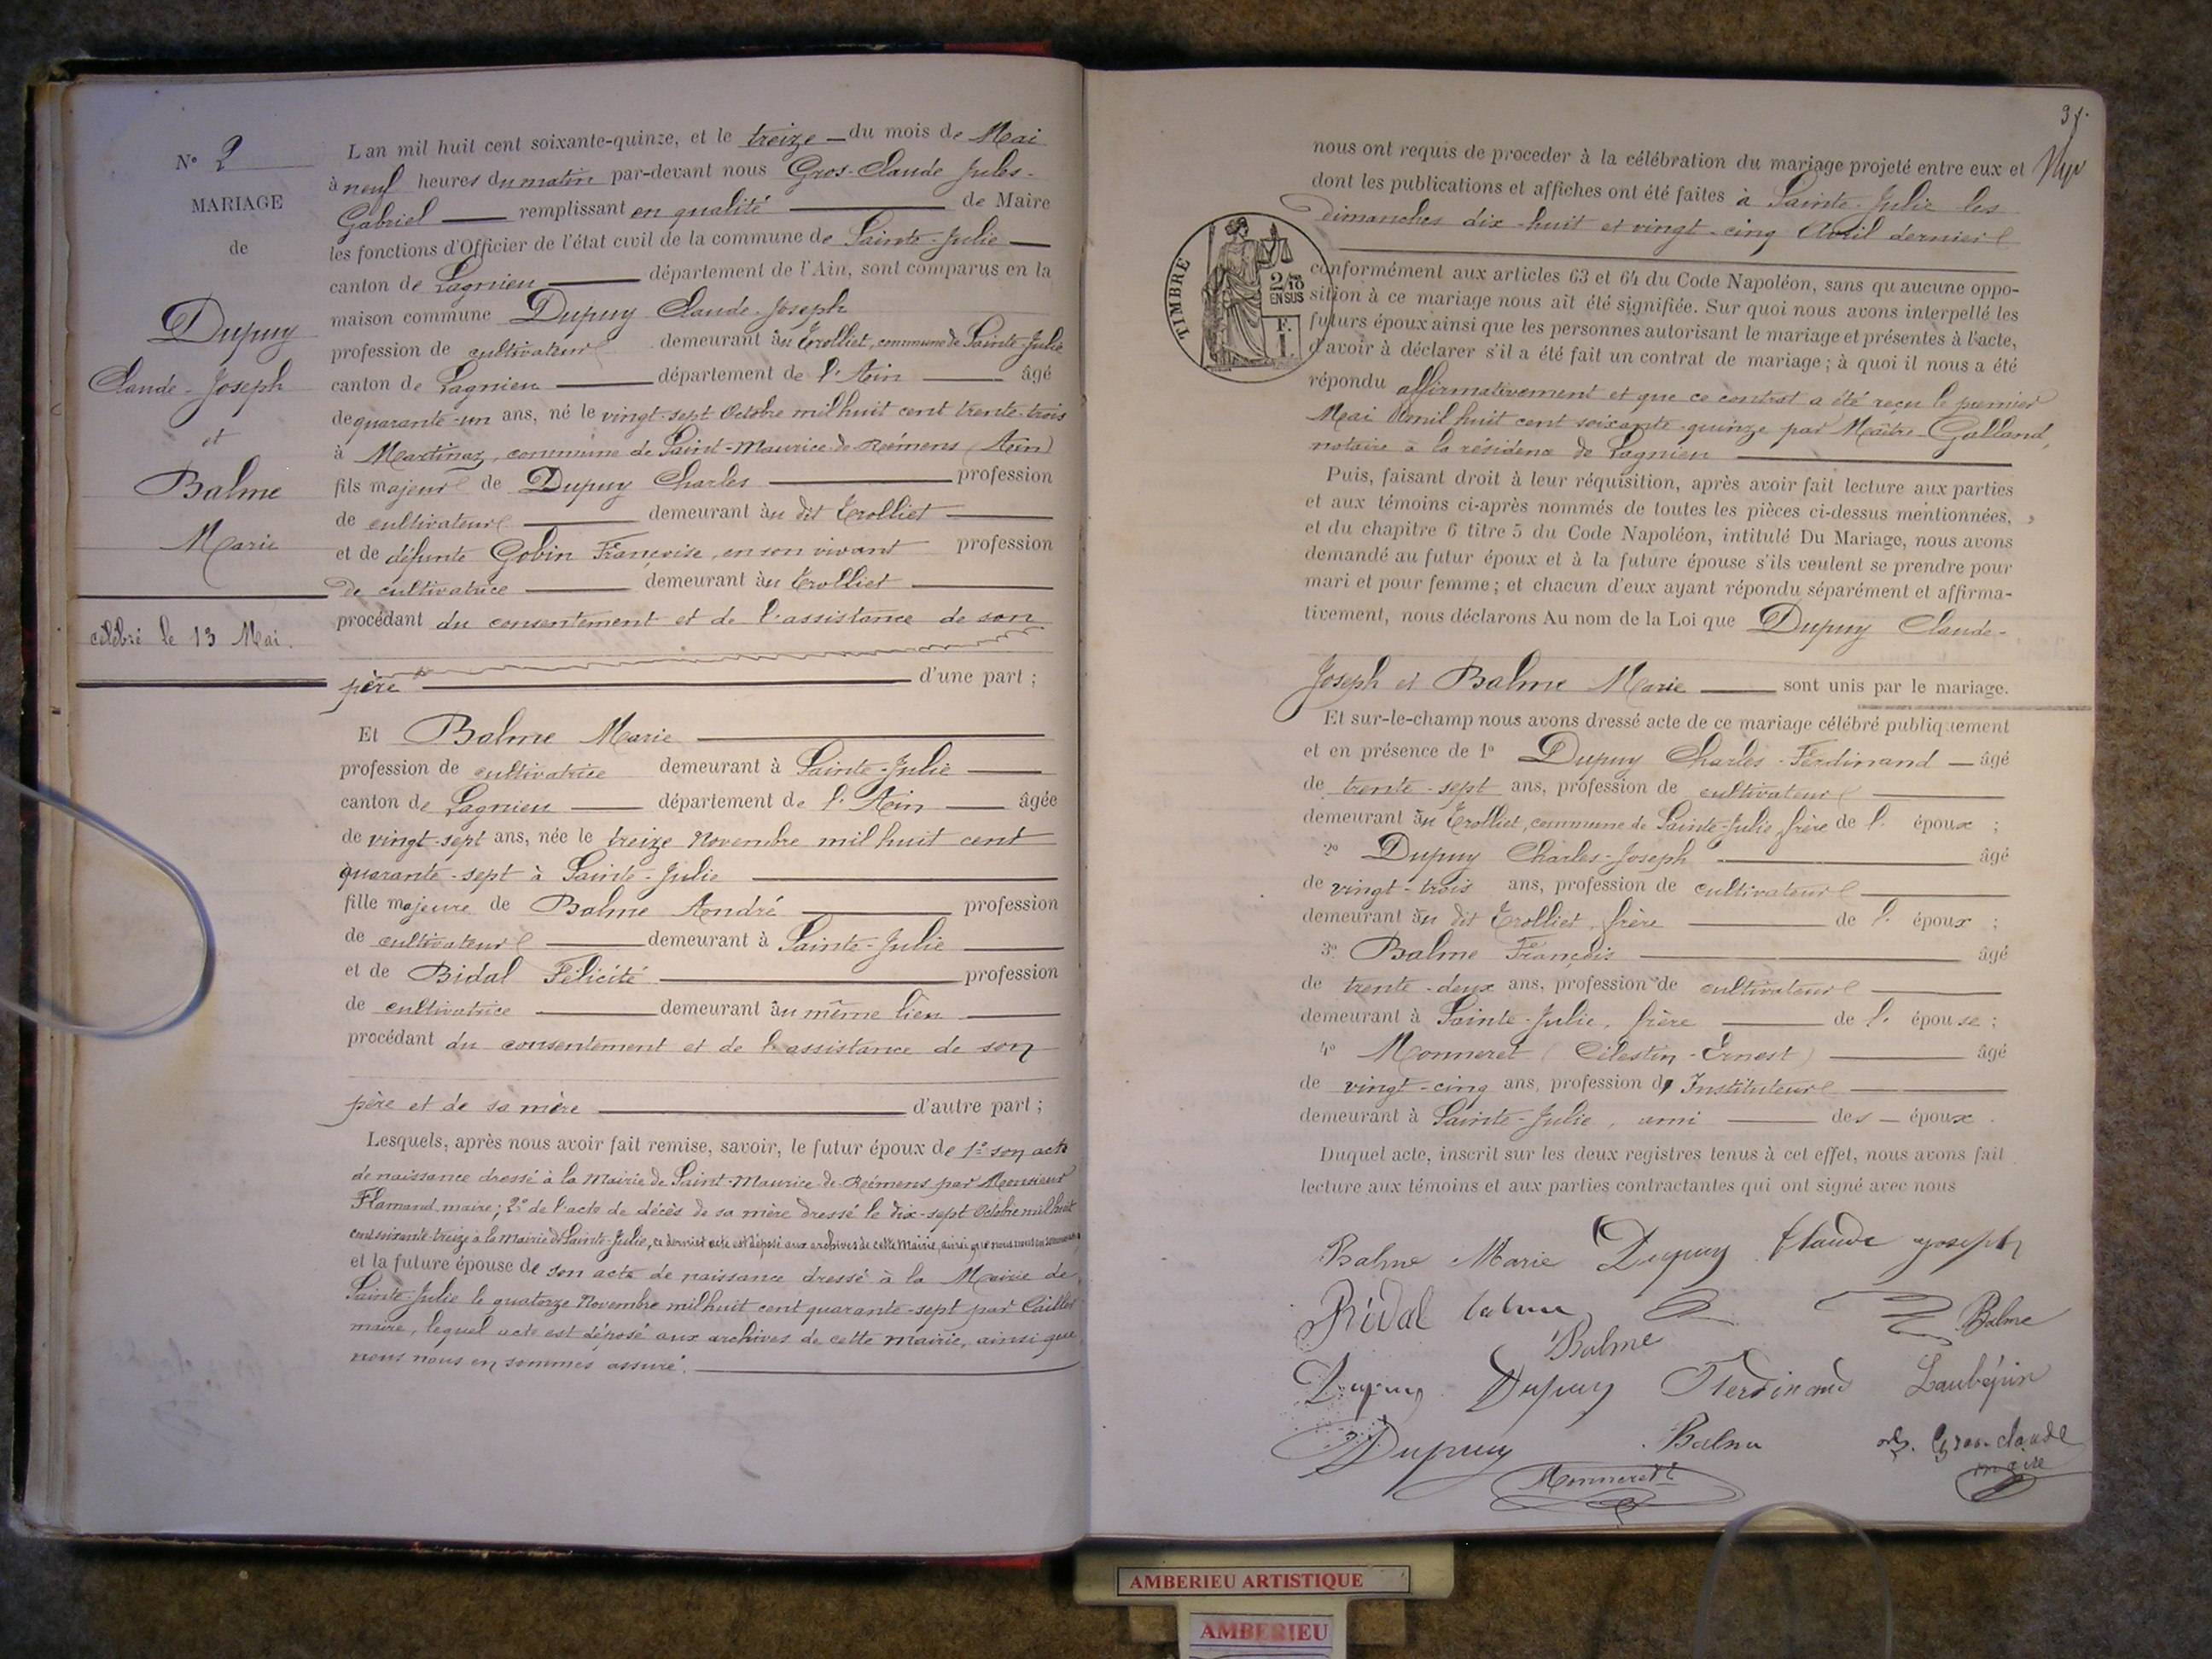 N° 2
MARIAGE
de
Dupuy
Claude-Joseph
et
Balme
Marie
célébré le 13 Mai.
L an mil huit cent soixante-quinze, et le treize du mois de Mai
à neuf heures du matin par-devant nous Gros-Claude Jules-
Gabriel remplissant en qualité de Maire
les fonctions d'Officier de l'état civil de la commune de Sainte-Julie
canton de Lagnieu département de l'Ain, sont comparus en la
maison commune Dupuy Claude-Joseph
profession de cultivateur demeurant àu Trolliet, commune de Sainte-Julie
canton de Lagnieu département de l'Ain âgé
de quarante-un ans, né le vingt-sept Octobre mil huit cent trente-trois
à Martinaz, commune de Saint-Maurice-de-Rémens (Ain)
fils majeur de Dupuy Charles profession
de cultivateur demeurant àu dit Trolliet
et de défunte Gobin Françoise, en son vivant profession
de cultivatrice demeurant àu Trolliet
procédant du consentement et de l'assistance de son
père d'une part ;
Et Balme Marie
profession de cultivatrice demeurant à Sainte-Julie
canton de Lagnieu département de l'Ain âgée
de vingt-sept ans, née le treize Novembre mil huit cent
quarante-sept à Sainte-Julie
fille majeure de Balme André profession
de cultivateur demeurant à Sainte-Julie
et de Bidal Félicité profession
de cultivatrice demeurant àu même lieu
procédant du consentement et de l'assistance de son
père et de sa mère d'autre part ;
Lesquels, après nous avoir fait remise, savoir, le futur époux de 1° son acte
de naissance dressé à la Mairie de Saint-Maurice-de-Rémens par Monsieur
Flamand maire; 2° de l'acte de décès de sa mère dressé le dix-sept Octobre mil huit
cent soixante-treize à la Mairie de Sainte-Julie, ce dernier acte est déposé aux archives de cette Mairie, ainsi que nous nous en sommes
et la future épouse de son acte de naissance dressé à la Mairie de
Sainte-Julie le quatorze Novembre mil huit cent quarante-sept par
maire, lequel acte est déposé aux archives de cette mairie, ainsi que
nous nous en sommes assuré.
nous ont requis de proceder à la célébration du mariage projeté entre eux et
dont les publications et affiches ont été faites à Sainte-Julie les
dimanches dix-huit et vingt-cinq Avril dernier
TIMBRE
2/10
EN SUS
F.
1.
conformément aux articles 63 et 64 du Code Napoléon, sans qu aucune oppo-
sition à ce mariage nous ait été signifiée. Sur quoi nous avons interpellé les
futurs époux ainsi que les personnes autorisant le mariage et présentes à l'acte,
d'avoir à déclarer s'il a été fait un contrat de mariage ; à quoi il nous a été
répondu affirmativement et que ce contrat a été reçu le premier
Mai mil huit cent soixante-quinze par Maître Galland,
notaire à la résidence de Lagnieu
Puis, faisant droit à leur réquisition, après avoir fait lecture aux parties
et aux témoins ci-après nommés de toutes les pièces ci-dessus mentionnées,
et du chapitre 6 titre 5 du Code Napoléon, intitulé Du Mariage, nous avons
demandé au futur époux et à la future épouse s'ils veulent se prendre pour
mari et pour femme ; et chacun d'eux ayant répondu séparément et affirma-
tivement, nous déclarons Au nom de la Loi que Dupuy Claude-
Joseph et Balme Marie sont unis par le mariage.
Et sur-le-champ nous avons dressé acte de ce mariage célébré publiquement
et en présence de 1° Dupuy Charles-Ferdinand âgé
de trente-sept ans, profession de cultivateur
demeurant àu Trolliet, commune de Sainte-Julie frère de l' époux ;
2° Dupuy Charles-Joseph âgé
de vingt-trois ans, profession de cultivateur
demeurant àu dit Trolliet, frère de l' époux ;
3° Balme François âgé
de trente-deux ans, profession de cultivateur
demeurant à Sainte-Julie, frère de l' épouse ;
4° Monneret (Célestin-Ernest) âgé
de vingt-cinq ans, profession d'Instituteur
demeurant à Sainte-Julie, ami des époux.
Duquel acte, inscrit sur les deux registres tenus à cet effet, nous avons fait
lecture aux témoins et aux parties contractantes qui ont signé avec nous
Balme Marie Dupuy Claude joseph
Bidal Balme
Balme
Dupuy Dupuy Ferdinand Laubépin
Dupuy Balme Gros-claude
maire
Monneret
AMBERIEU ARTISTIQUE
AMBERIEU